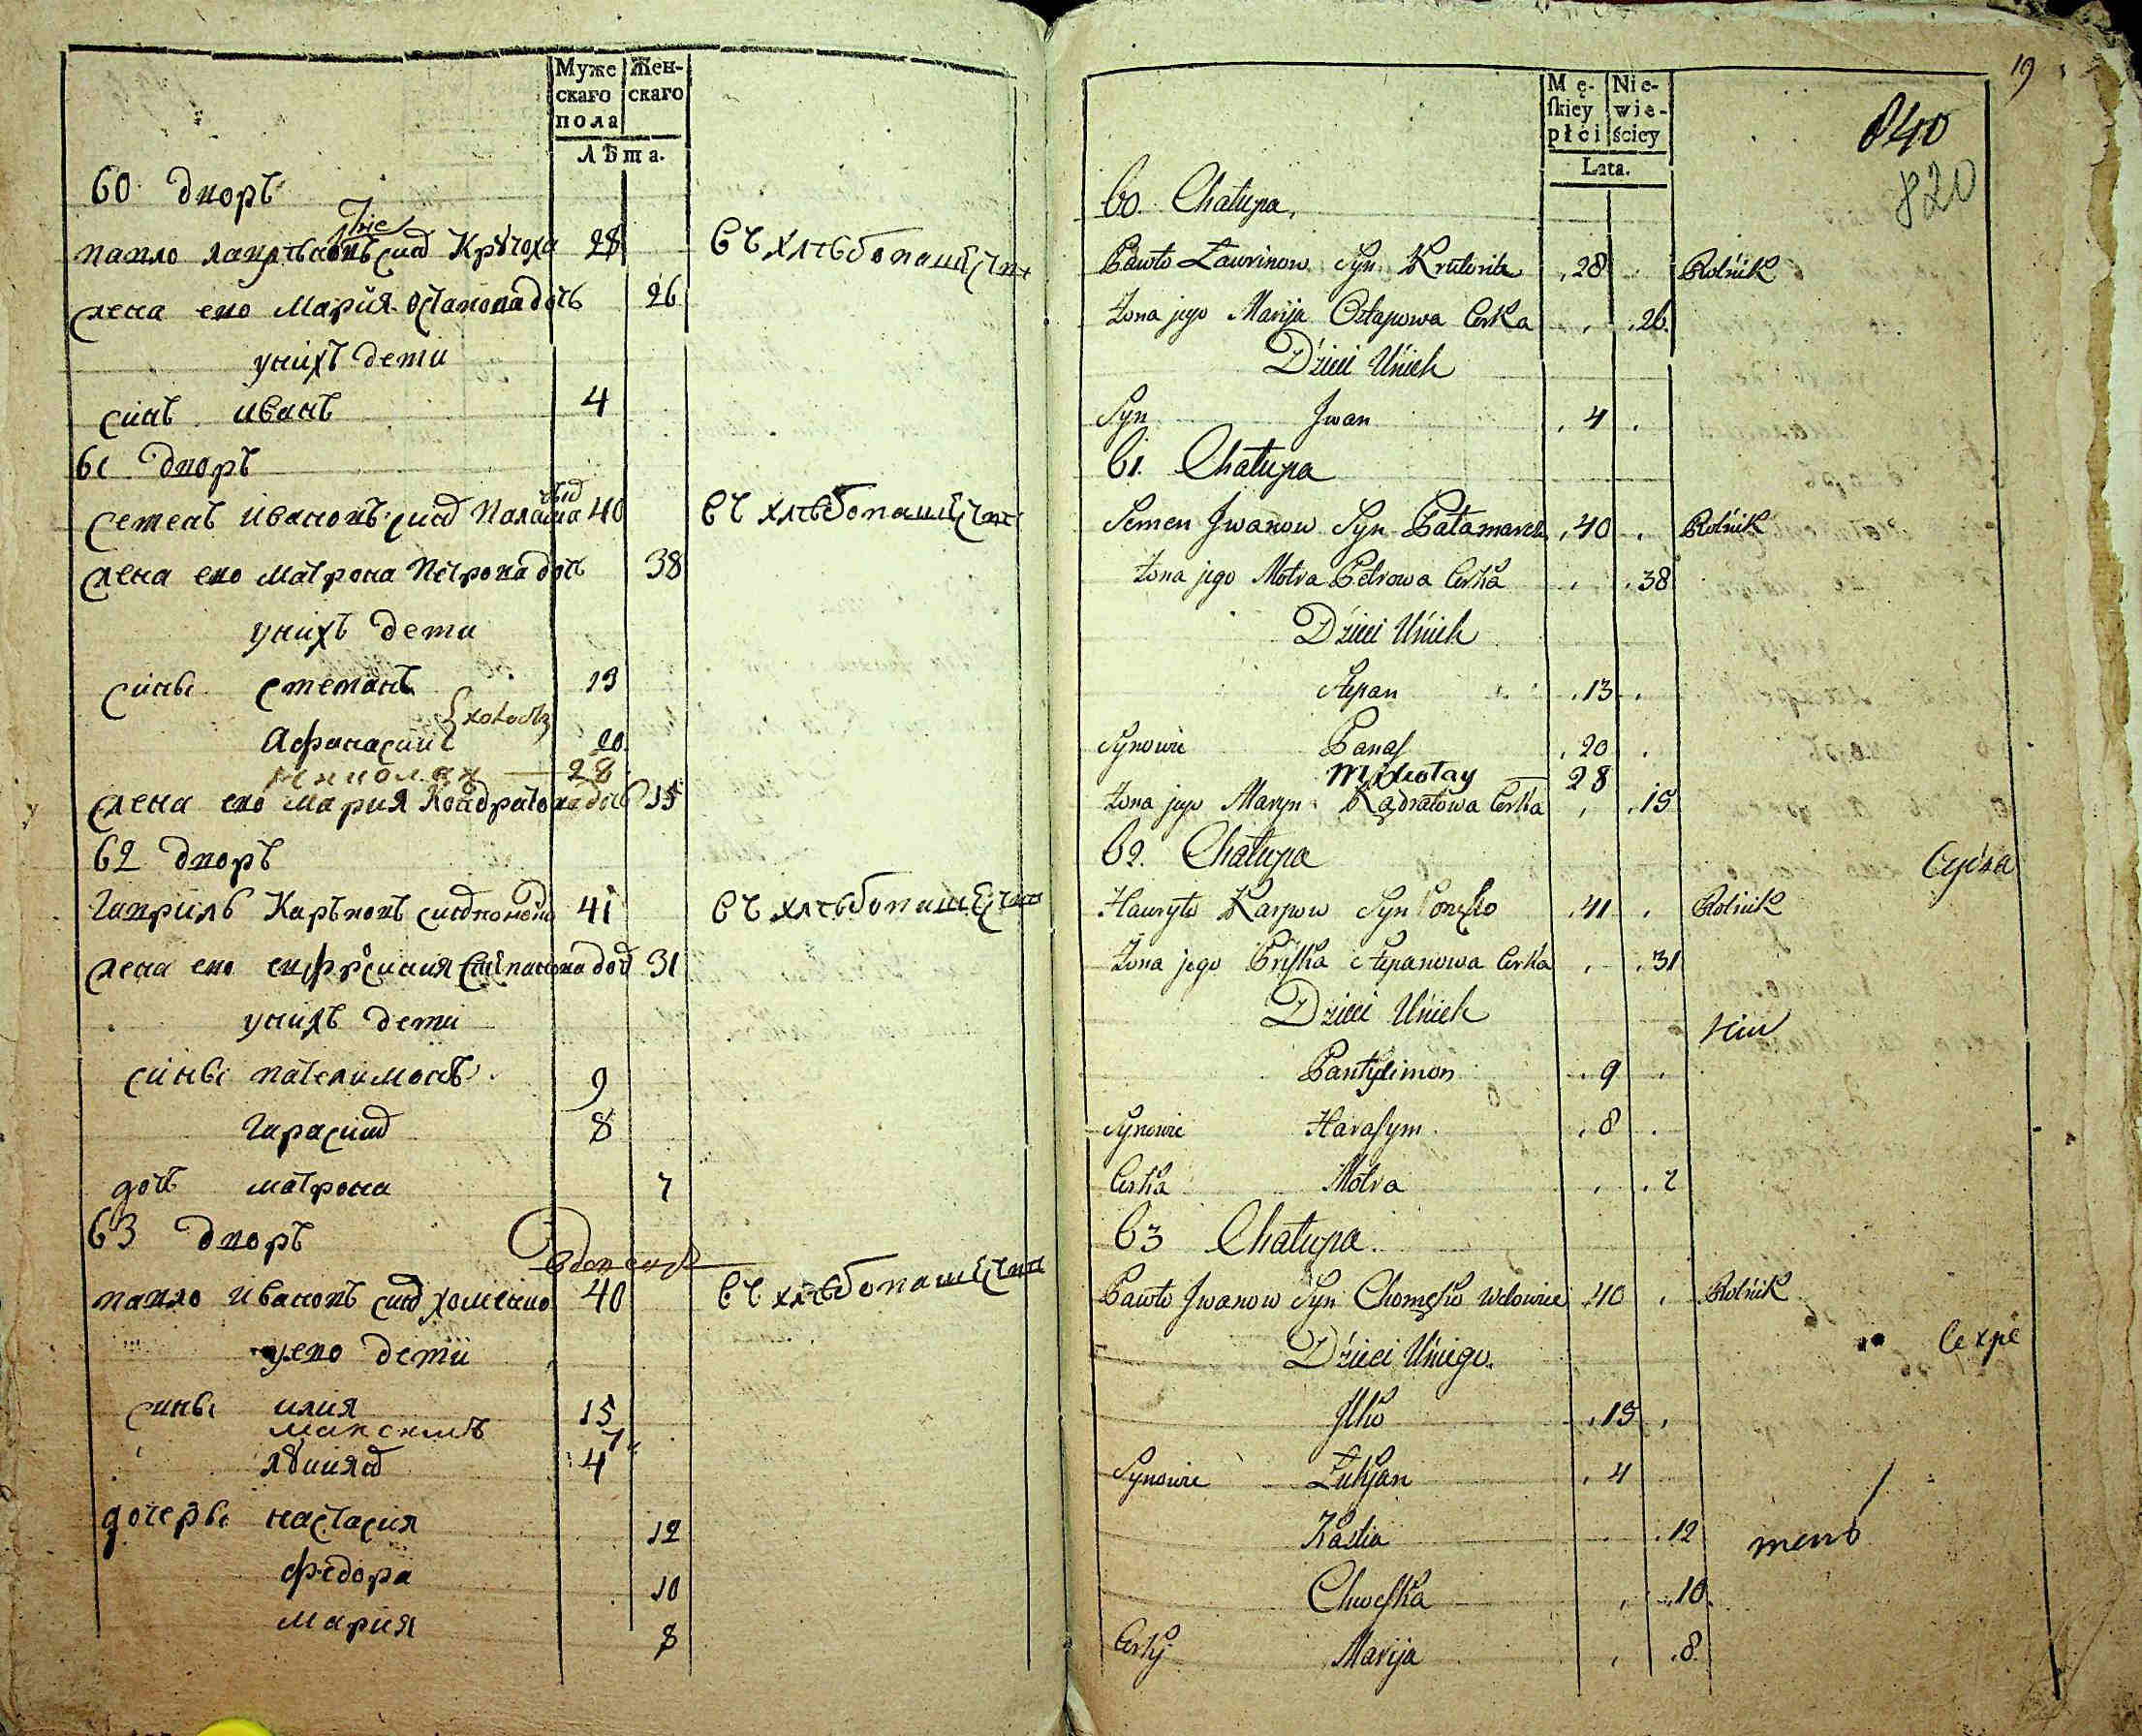 Муже
скаго
пола
Жен-
скаго
Лѣта.
60 дворъ
павло лаврѣновъ синъ 28 въ хлѣбопашествѣ
жена его Мария Остапова дочь 26
у нихъ дети
синъ иванъ 4
61 дворъ
семенъ ивановъ синъ 40 въ хлѣбопашествѣ
жена его матрона петрова дочь 38
у нихъ дети
сины степанъ 13
Афанасий холостъ 20
Николай 28
жена его Мария Кондратова дочь 15
62 дворъ
гаврилъ Карповъ синъ 41 въ хлѣбопашествѣ
жена его ефросиния степанова дочь 31
у нихъ дети
сины пателимонъ 9
гарасим 8
дочь матрона 7
63 дворъ
вдовецъ
павло ивановъ синъ хоменко 40 въ хлѣбопашествѣ
у его дети
сины илия 15
максимъ 7
лукиян 4
дочеры настасия 12
федора 10
мария 8
19
Mę-
skiey
płci
Nie-
wie-
ściey
Lata.
840
820
60 Chałupa.
Pawło Ławrinow Syn 28 Rolnik
Żona jego Marija Ostapowa Corka 26
Dzieci Unich
Syn Jwan 4
61. Chałupa
Semen Jwanow Syn Pałamarek 40 Rolnik
Żona jego Motra Petrowa Corka 38
Dzieci Unich
Stepan 13
Synowie Panas 20
Mikołay 28
Żona jego Maryn Kądratowa Corka 15
62. Chałupa
Hawryło Karpow Syn 41 Rolnik
Żona jego Priska Stepanowa Corka 31
Dzieci Unich
Pantylimon 9
Synowie Harasym 8
Corka Motra 7
63 Chałupa
Pawło Jwanow Syn Chomęko Wdowiec 40 Rolnik
Dzieci Uniego.
Ilko 15
Synowie Łukjan 4
Nastia 12
Chweska 10
Corky Marija 8